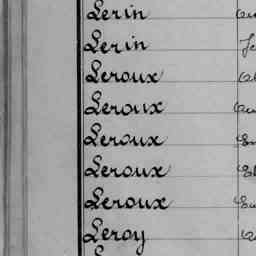 Lerin
Lerin
Leroux
Leroux
Leroux
Leroux
Leroux
Leroy